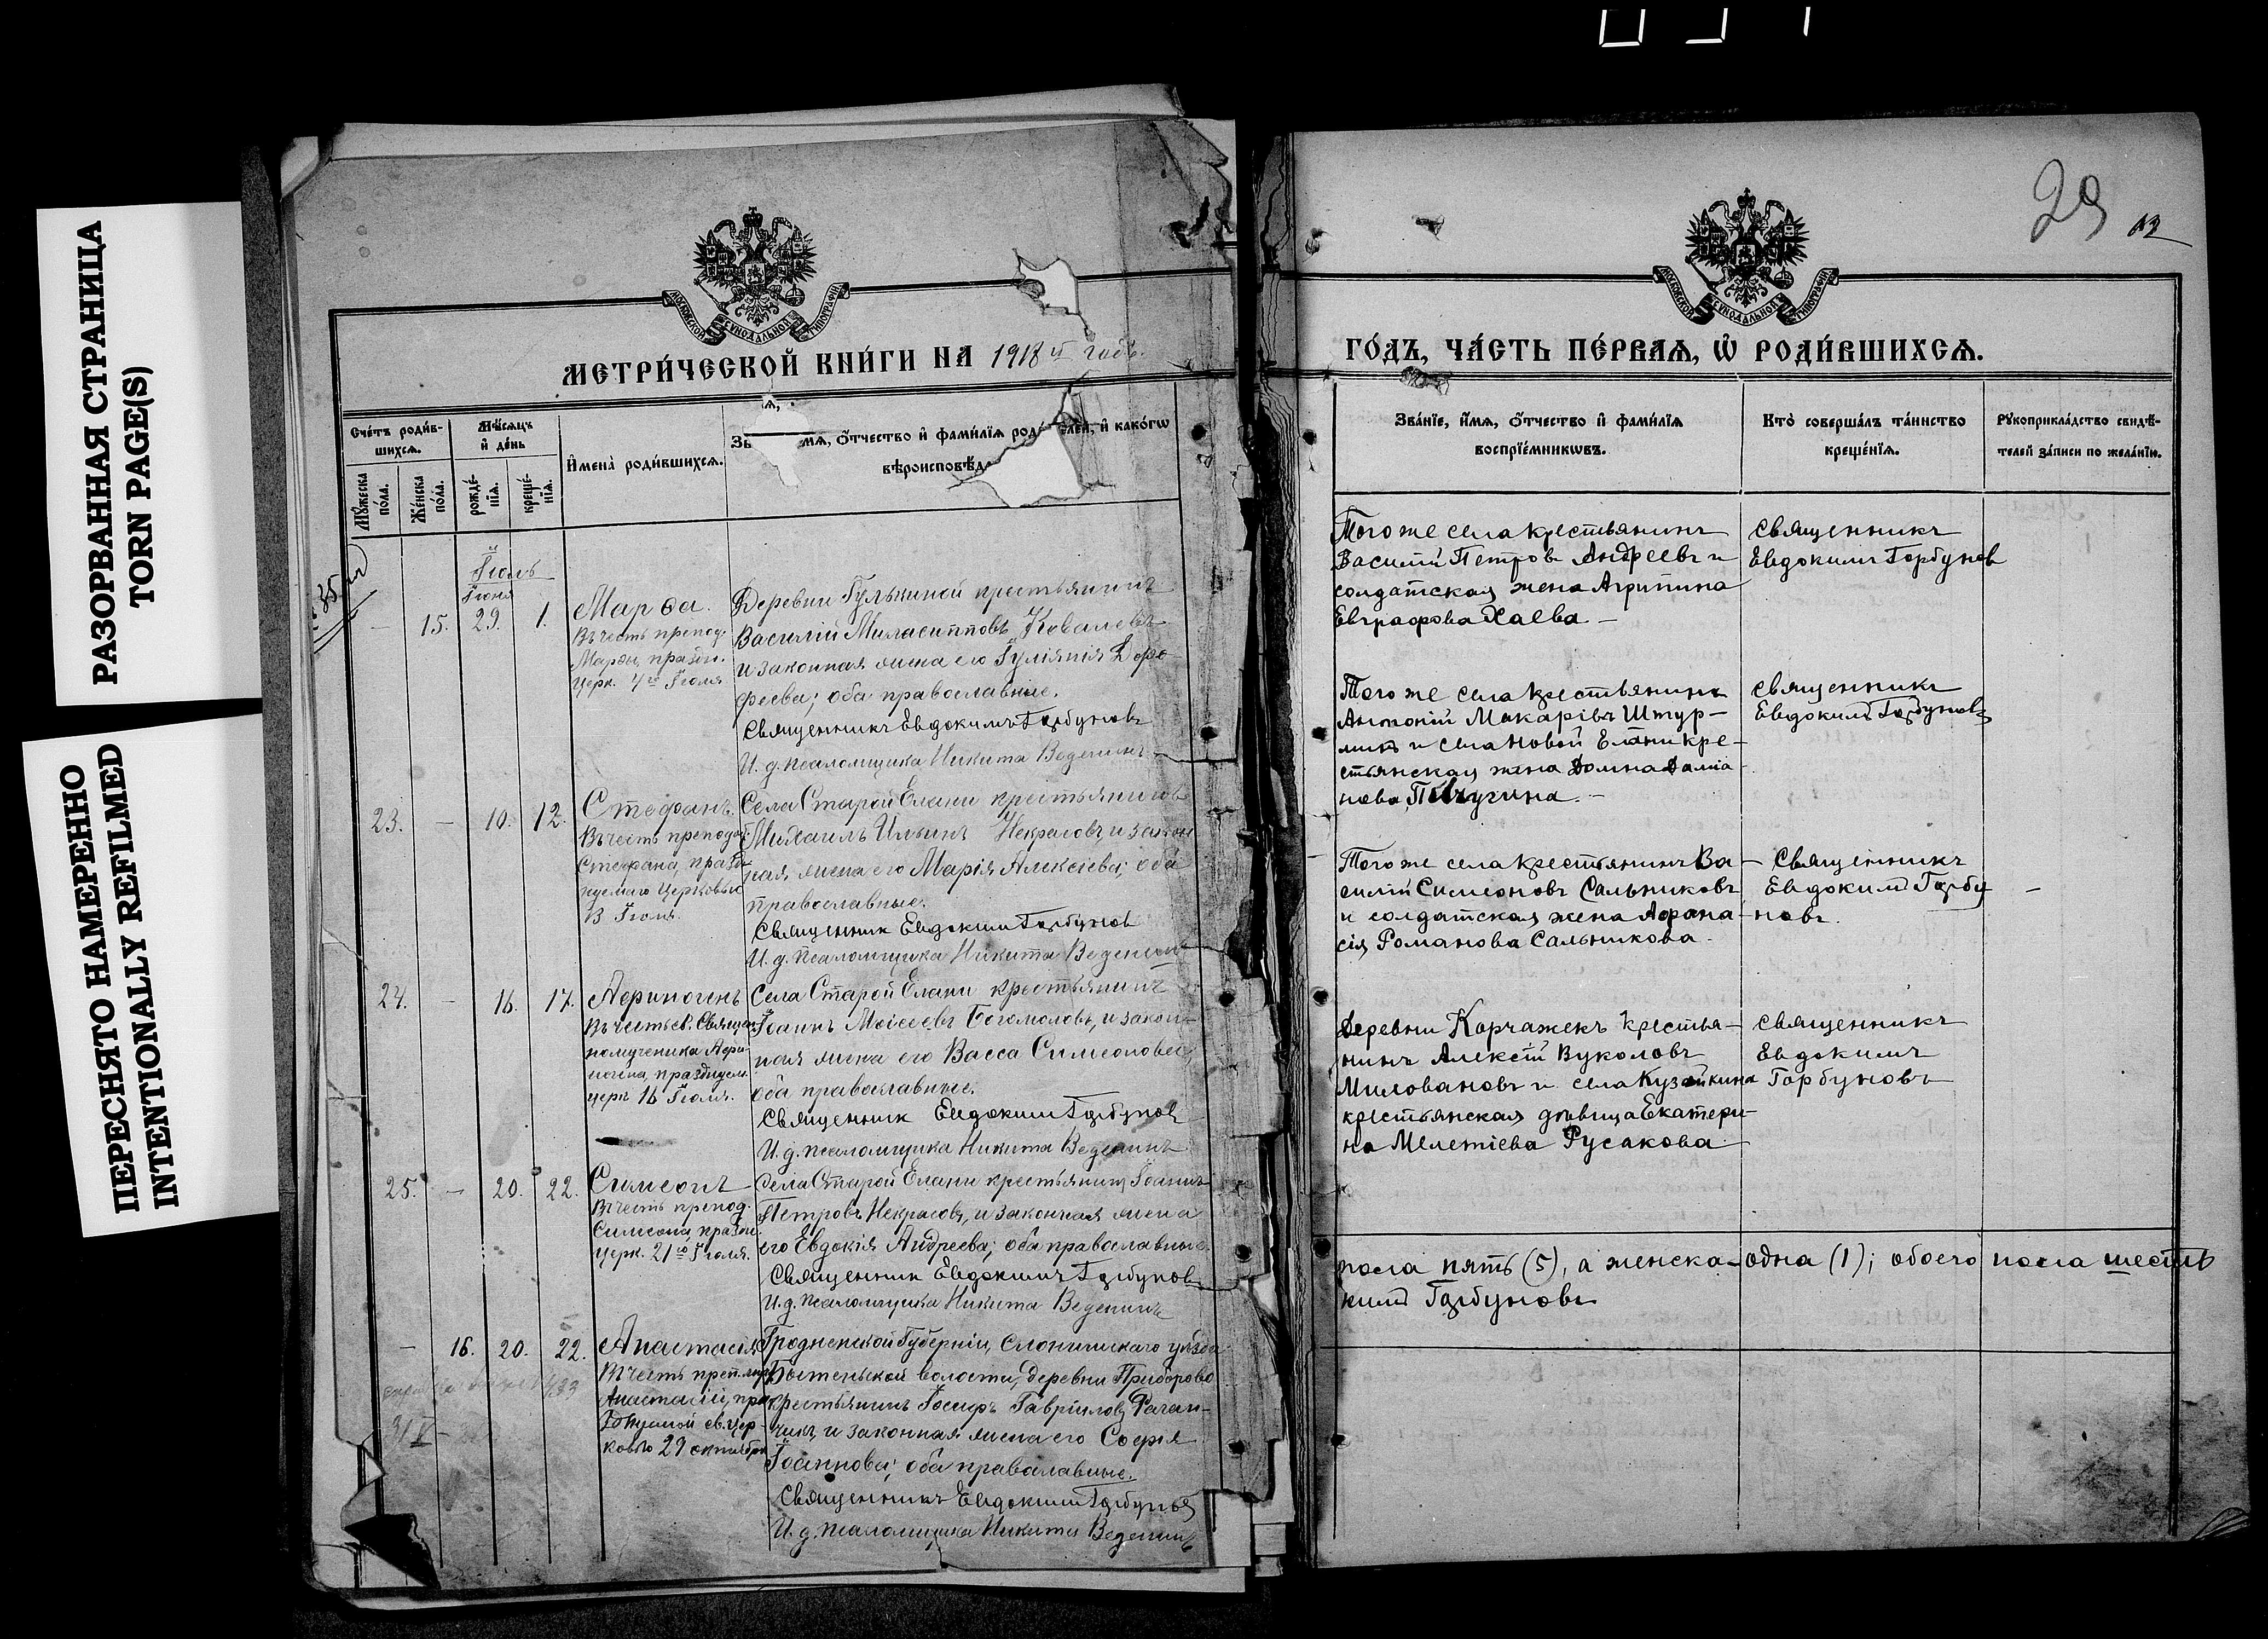 РАЗОРВАННАЯ СТРАНИЦА
TORN PAGE(S)
ПЕРЕСНЯТО НАМЕРЕННО
INTENTIONALLY REFILMED
МОСКОВСКОЙ СѴНОДАЛЬНОЙ ТИПОГРАФІИ
МЕТРИ́ЧЕСКОЙ КНИ́ГИ НА 1918 й годъ.
Сче́тъ роди́в-
шихсѧ.
Мѣ́сѧцъ
и҆ де́нь
Мꙋ́жеска
по́ла.
Же́нска
по́ла.
рожде́-
нїѧ.
креще́-
нїѧ.
И҆мена̀ роди́вшихсѧ.
о҆́тчество и҆ фами́лїѧ и҆ како́гѡ
вѣроисповѣ́д
Іюль
Іюня
— 15. 29. 1.
Марѳа.
Въ честь препод.
Марѳы, праздн.
церк. 4го Іюля
Деревни Гулькиной крестьянинъ
Василій Ковалевъ
и законная жена его Іуліянія Доро-
феева; оба православные.
Священникъ Евдокимъ Горбуновъ
И. д. псаломщика Никита Веденинъ
23. — 10. 12.
Стефанъ.
Въ честь преподоб.
Стефана, праздн
церковью
13 Іюля.
Села Старой Елани крестьянинъ
Михаилъ Ильинъ Некрасовъ, и закон
ная жена его Марія Алексіева; оба
православные.
Священник Евдоким Горбунов
И. д. псаломщика Никита Веденинъ
24. — 16. 17.
Аѳиногенъ
Въ честь св. Священ-
номученика Аѳи-
ногена, празднуем.
церк. 16 Іюля.
Села Старой Елани крестьянинъ
Іоаннъ Моісеевъ Богомоловъ, и закон-
ная жена его Васса Симеонова;
оба православные.
Священник Евдоким Горбунов
И. д. псаломщика Никита Веденинъ
25. — 20. 22.
Симеонъ
Въ честь препод.
Симеона, праздн.
церк. 21го Іюля.
Села Старой Елани крестьянинъ Іоаннъ
Петровъ Некрасовъ, и законная жена
его Евдокія Андреева; оба православные.
Священник Евдокимъ Горбунов
И. д. псаломщика Никита Веденинъ
— 16. 20. 22.
Анастасія
Въ честь преп. муч.
Анастасіи, пра
зднуемой св. цер-
ковью 29 октября
Гродненской Губерніи, Слонимскаго уѣзда
Бытеньской волости, деревни Приборово
крестьянинъ Іосифъ Гавріиловъ Рачан-
чикъ, и законная жена его Софія
Іоаннова; оба православные.
Священникъ Евдоким Горбуновъ
И. д. псаломщика Никита Веденинъ
29
МОСКОВСКОЙ СѴНОДАЛЬНОЙ ТИПОГРАФІИ
ГО́ДЪ, ЧА́СТЬ ПЕ́РВАѦ, Ѡ҆ РОДИ́ВШИХСѦ.
Зва́нїе, и҆́мѧ, о҆́тчество и҆ фами́лїѧ
воспрїе́мникѡвъ.
Кто̀ соверша́лъ та́инство
креще́нїѧ.
Рꙋкоприкла́дство свидѣ́-
телей за́писи по жела́нїю.
Того же села крестьянинъ
Василій Петров Андреевъ и
солдатская жена Агрипина
Евграфова Хаева –
Священникъ
Евдокимъ Горбунов
Того же села крестьянинъ
Антоній Макарівъ Штур-
минъ и села Новой Елани кре-
стьянская жена Домна Даміа-
нова Пичугина –
священникъ
Евдокимъ Горбуновъ
Того же села крестьянинъ Ва-
силій Симеоновъ Сальниковъ
и солдатская жена Афана-
сія Романова Сальникова.
Священникъ
Евдокимъ Горбу
новъ.
Деревни Корчажекъ крестья-
нинъ Алексій Вуколовъ
Миловановъ и села Кузайкина
крестьянская дѣвица Екатери-
на Мелетіева Русакова.
священникъ
Евдокимъ
Горбуновъ
пола пять (5), а женска – одна (1); обоего пола шесть
кимъ Горбуновъ